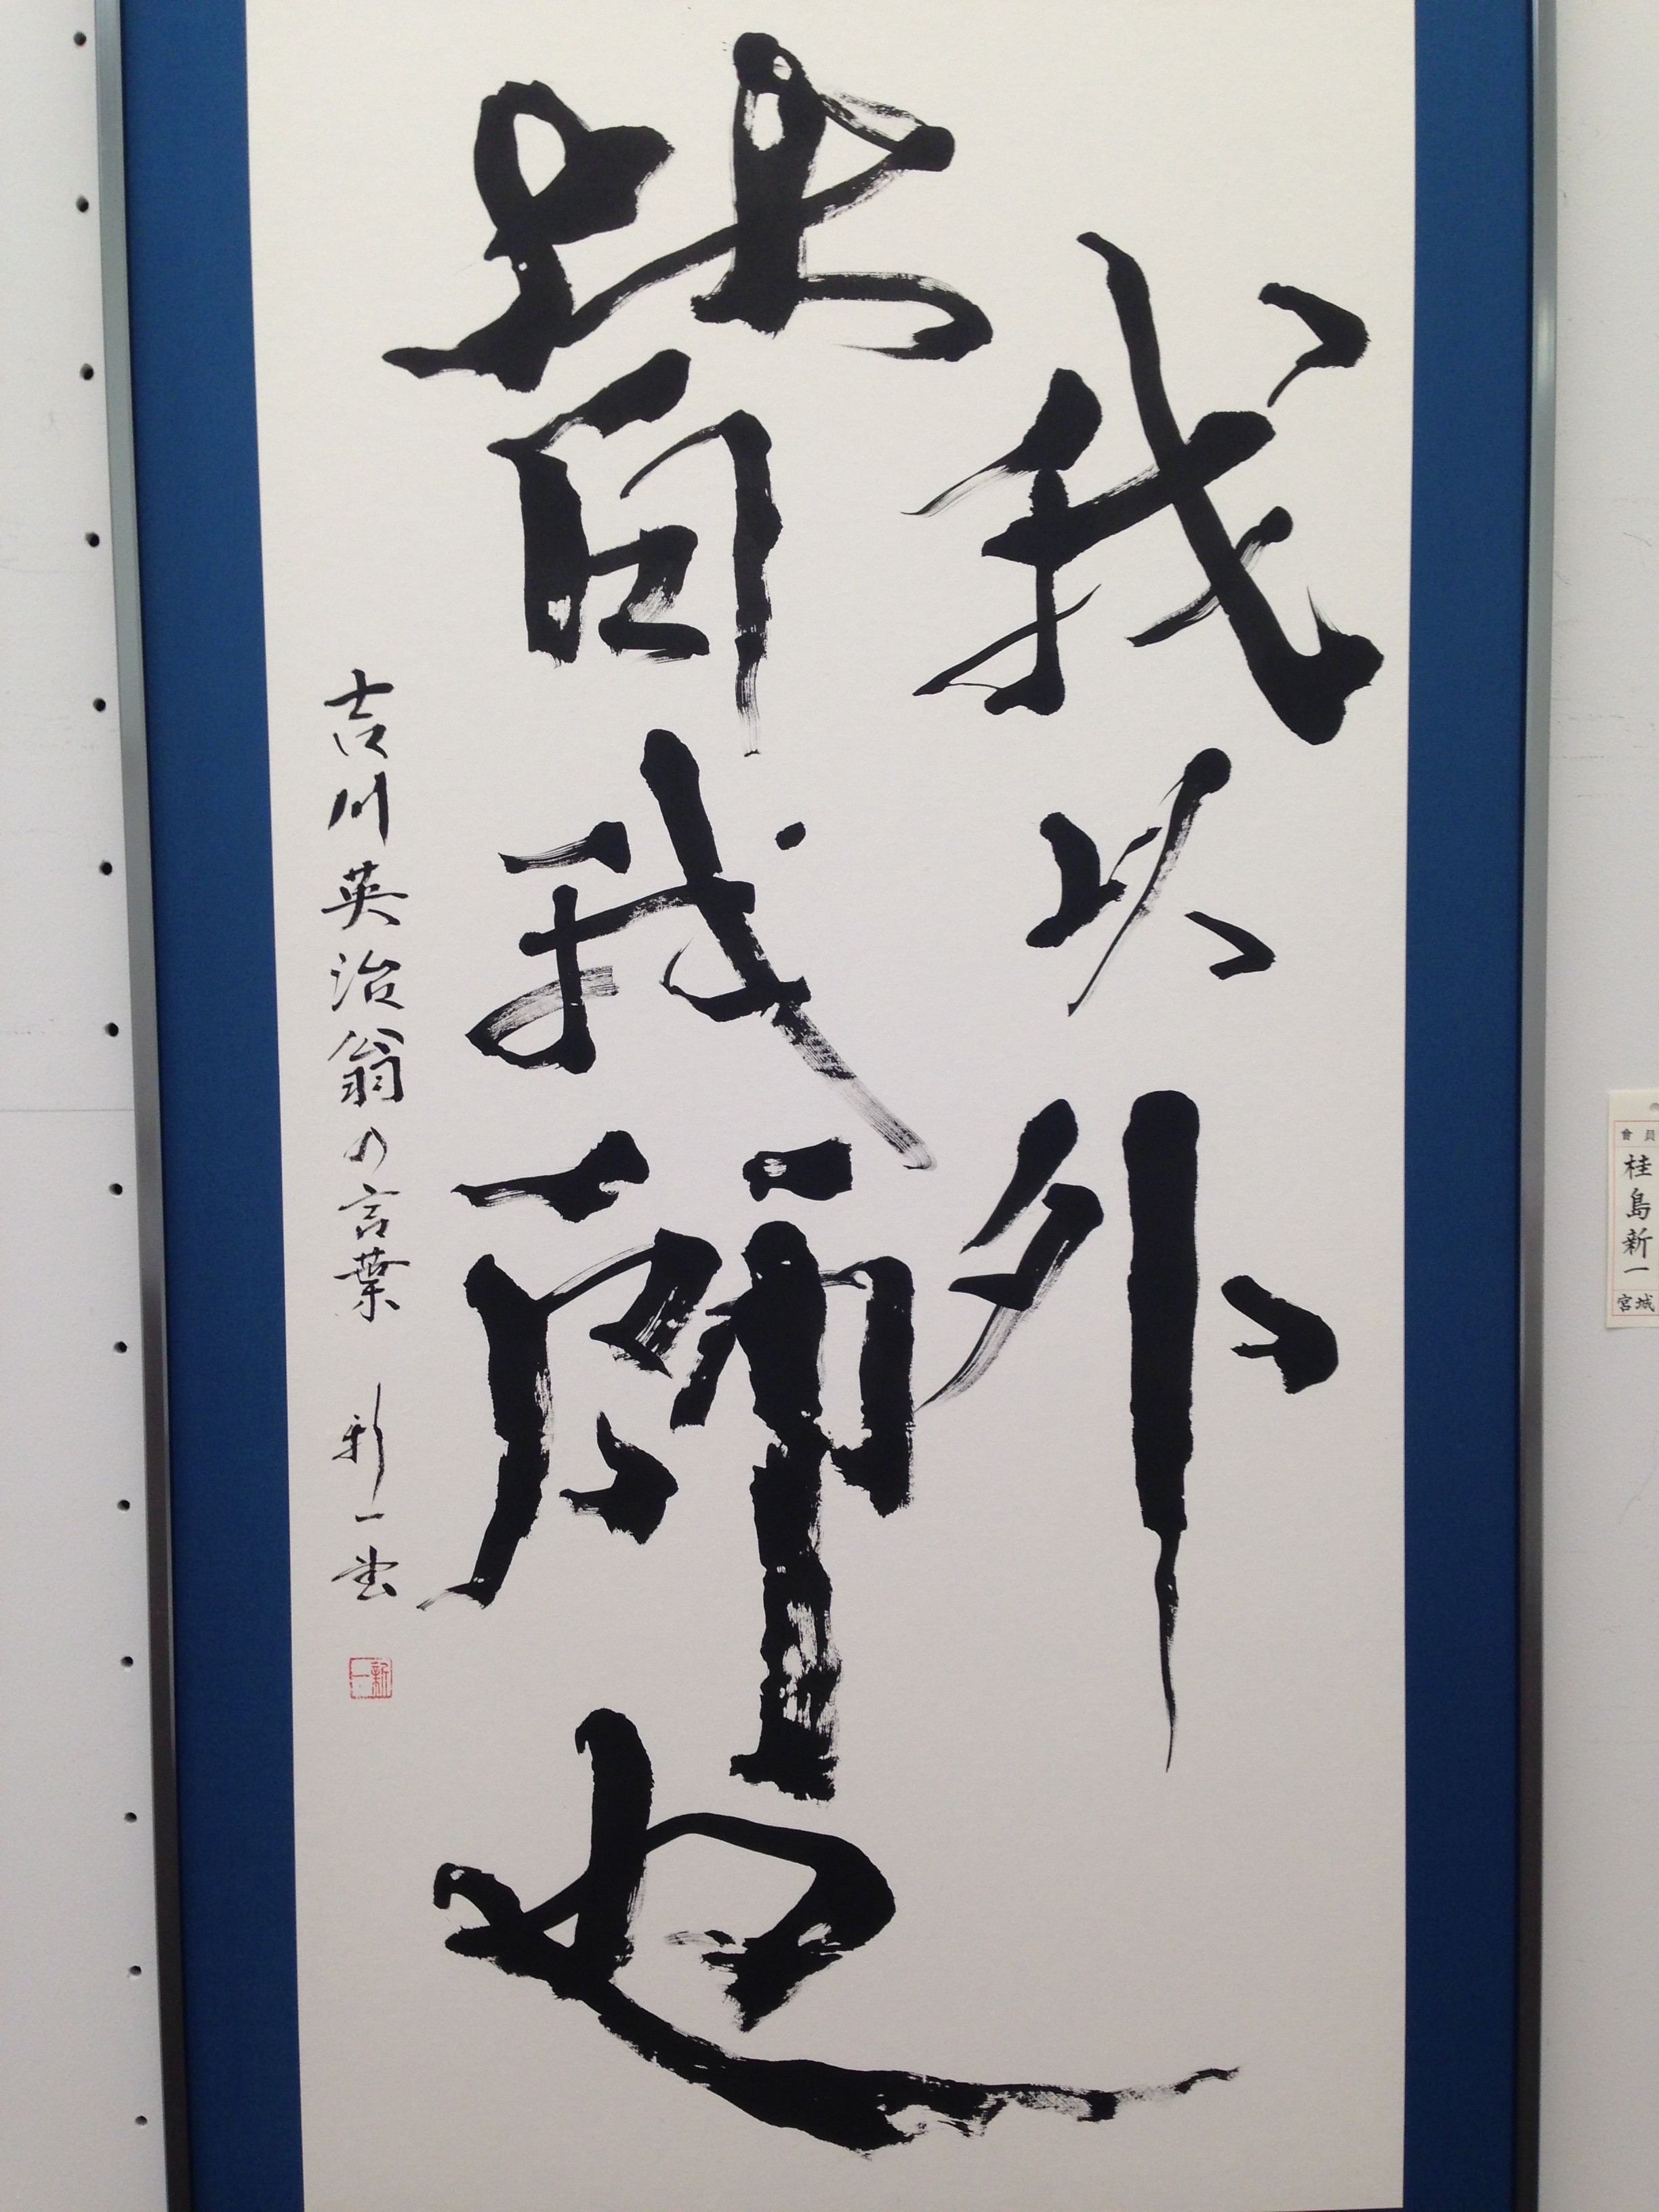 我以外
皆我師也
吉川英治翁の言葉 新一書
新一
會員
桂島新一
宮城